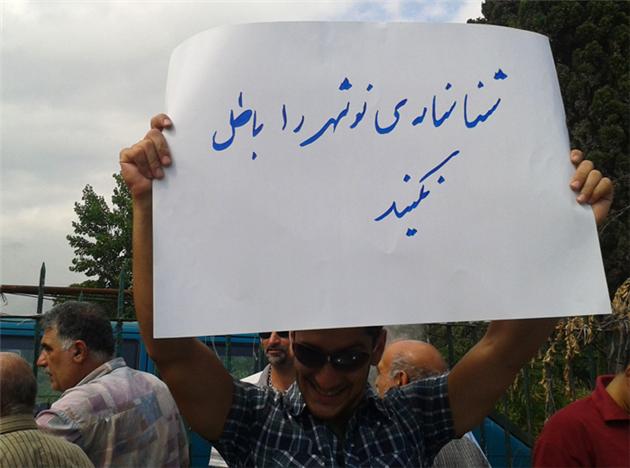 شناسنامه‌ی نوشهر را باطل
نکنید